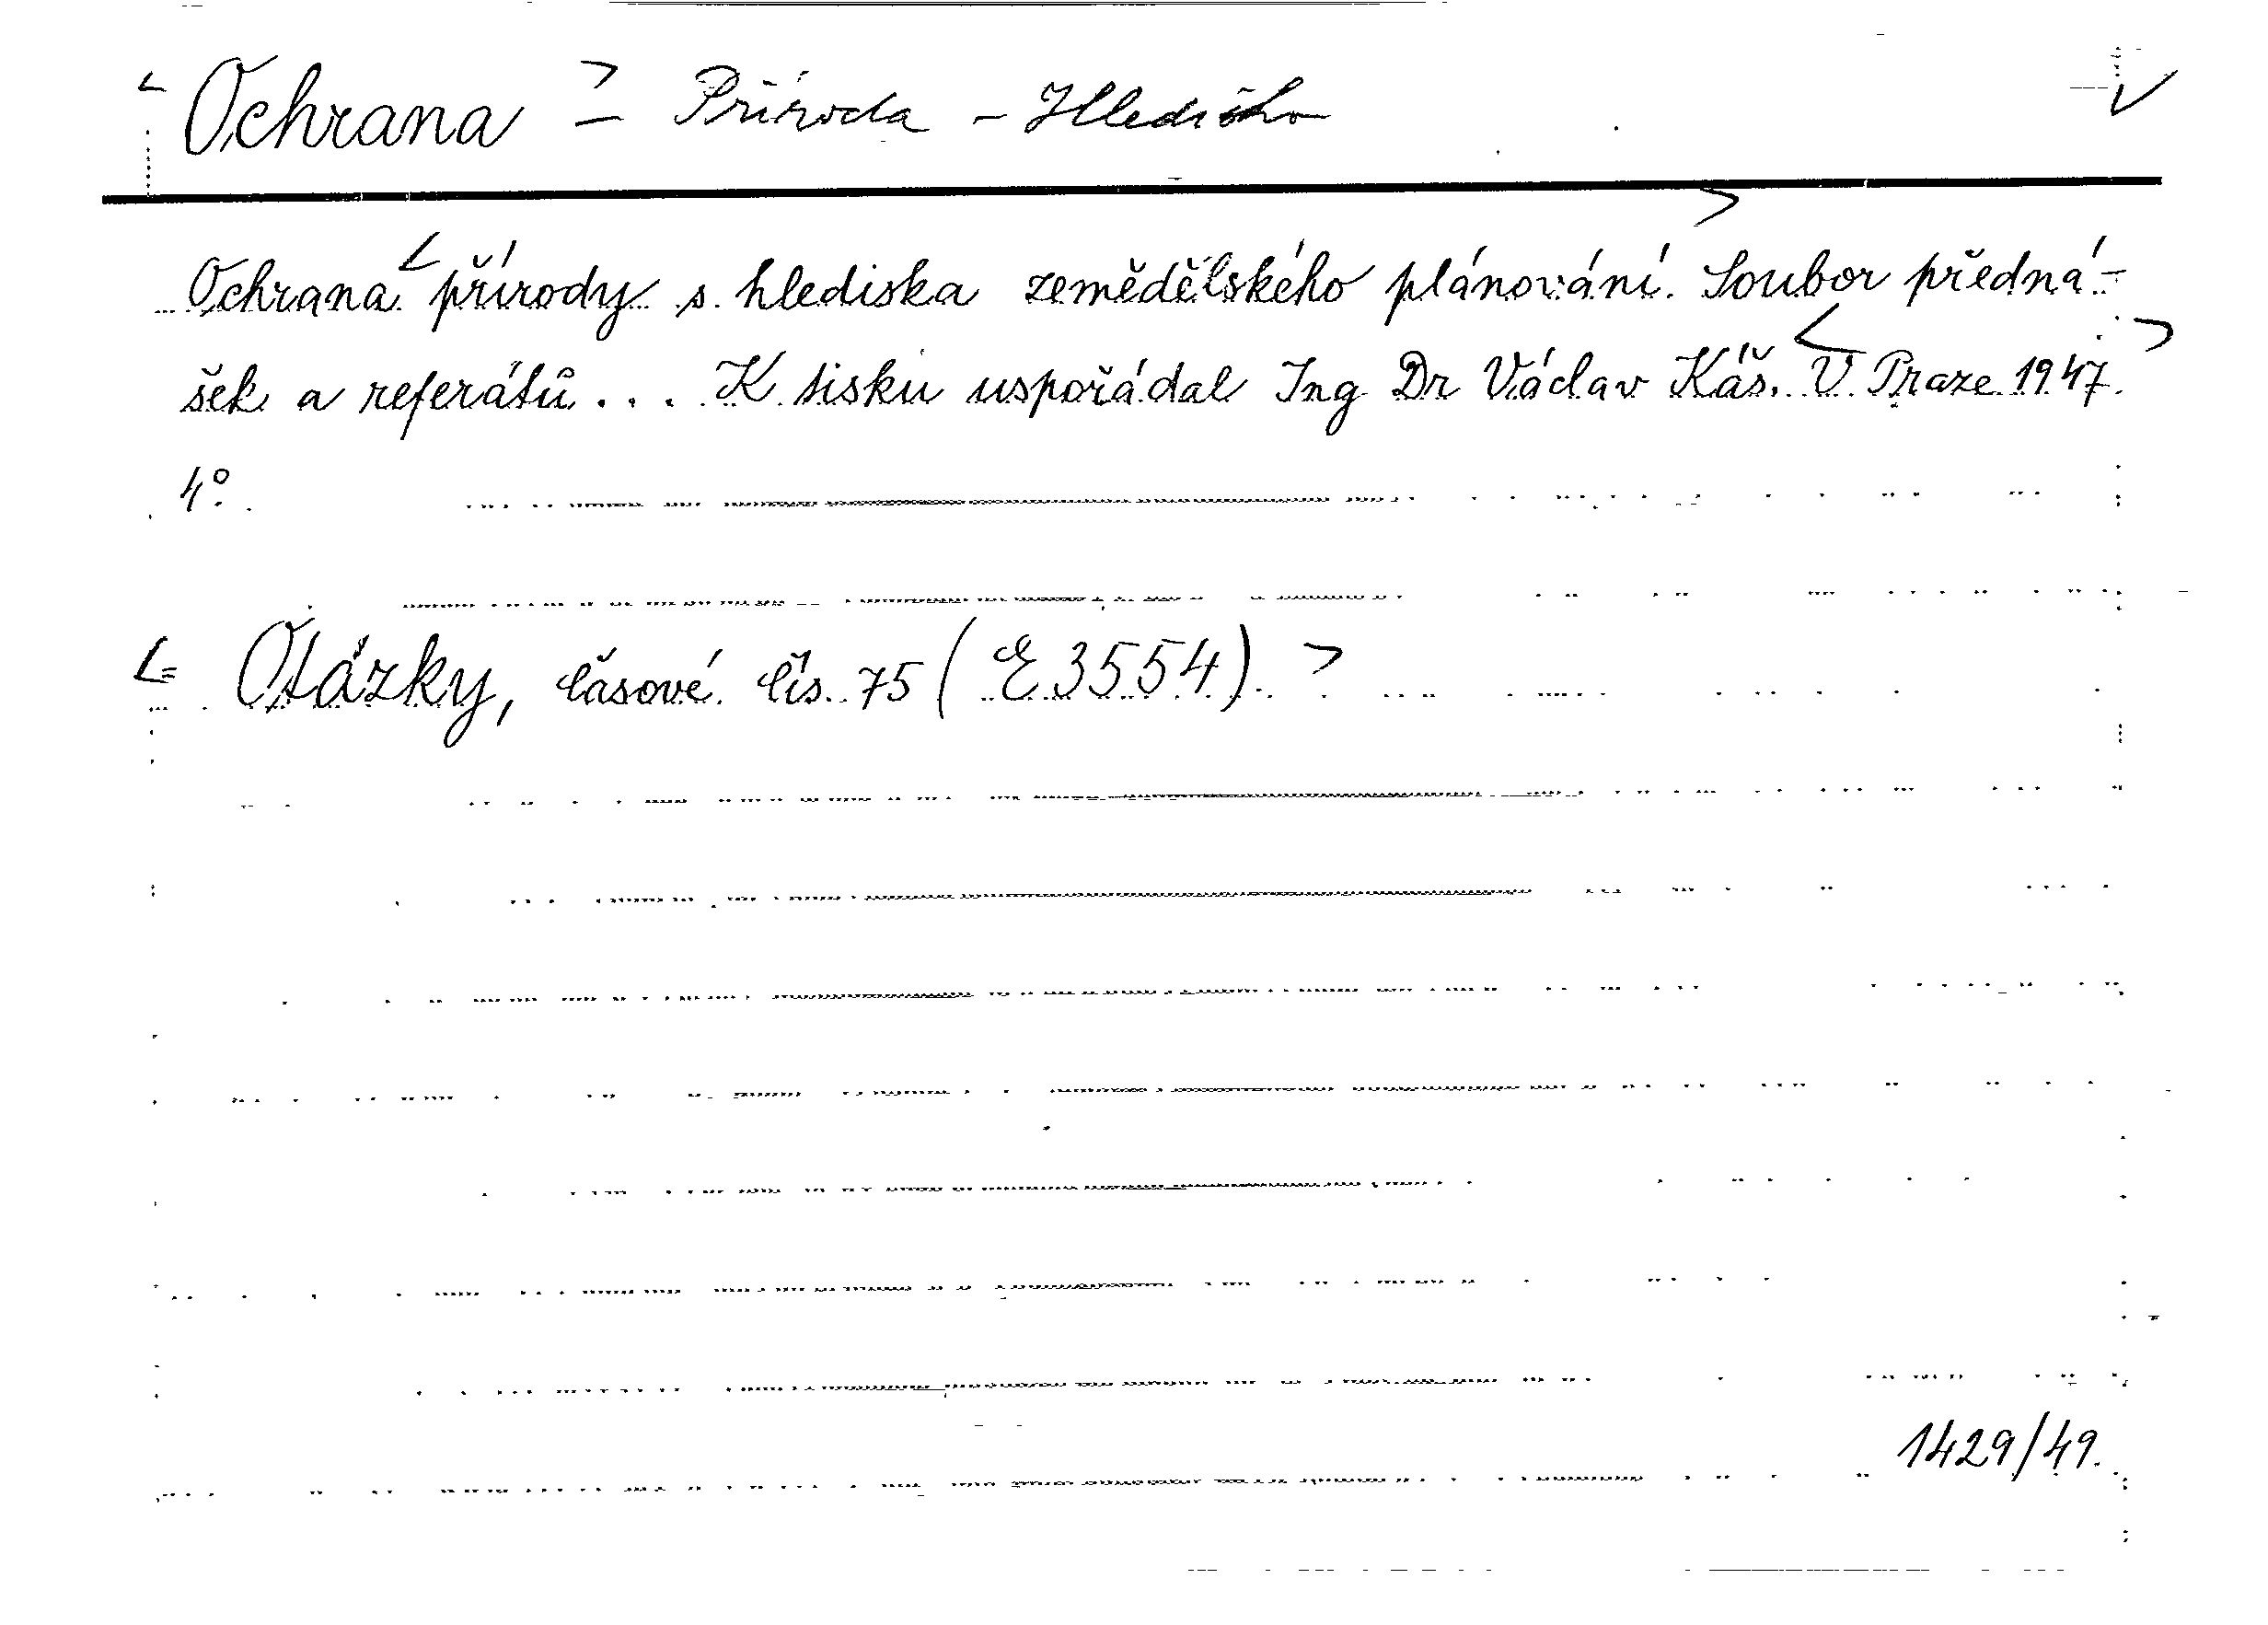 Ochrana - Příroda - Hledisko
Ochrana přírody s hlediska zemědělského plánování. Soubor předná-
šek a referátů... K tisku uspořádal Ing Dr Václav Káš. V Praze 1947.
4°.
Otázky, časové čís. 75 (E 3554).
1429/49.